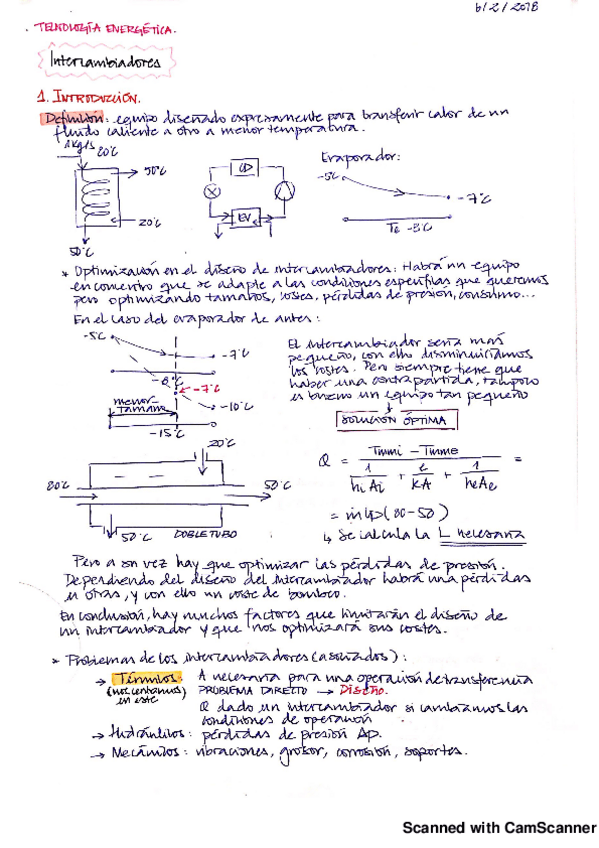 6/2/2018
TECNOLOGÍA ENERGÉTICA.
Intercambiadores
1. INTRODUCCIÓN.
Definición: equipo diseñado expresamente para transferir calor de un
fluido caliente a otro a menor temperatura.
1kg/s 80ºC
50ºC
20ºC
50ºC
CD
EV
Evaporador:
-5C
-7ºC
Te -8C
* Optimización en el diseño de intercambiadores: Habrá un equipo
en concreto que se adapte a las condiciones específicas que queremos
pero optimizando tamaños, costes, pérdidas de presión, consumo...
En el caso del evaporador de antes:
-5C
-7ºC
-8ºC
-7ºC
-10ºC
menor
tamaño
-15ºC
El intercambiador sería más
pequeño, con ello disminuiríamos
los costes. Pero siempre tiene que
haber una contrapartida, tampoco
es bueno un equipo tan pequeño
SOLUCIÓN ÓPTIMA
20ºC
80ºC
50ºC
50ºC
DOBLE TUBO
Q = Tmmi - Tmme / (1/hiAi + e/KA + 1/heAe) =
= ṁ Cp (80-50)
↳ Se calcula la L necesaria
Pero a su vez hay que optimizar las pérdidas de presión.
Dependiendo del diseño del intercambiador habrá una pérdidas
u otras, y con ello un coste de bombeo.
En conclusión, hay muchos factores que limitarán el diseño de
un intercambiador y que nos optimizará sus costes.
* Problemas de los intercambiadores (asociados):
→ Térmicos: A necesaria para una operación de transferencia
(nos centramos en este) PROBLEMA DIRECTO → DISEÑO.
Q dado un intercambiador si cambiamos las
condiciones de operación
→ Hidráulicos: pérdidas de presión Δp.
→ Mecánicos: vibraciones, grosor, corrosión, soportes.
Scanned with CamScanner